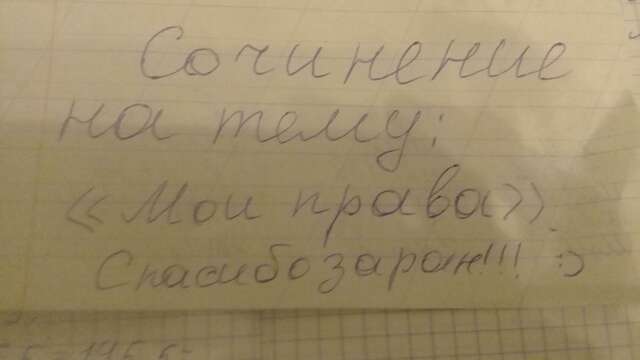 Сочинение
на тему:
«Мои права».
Спасибо заран!!! :)